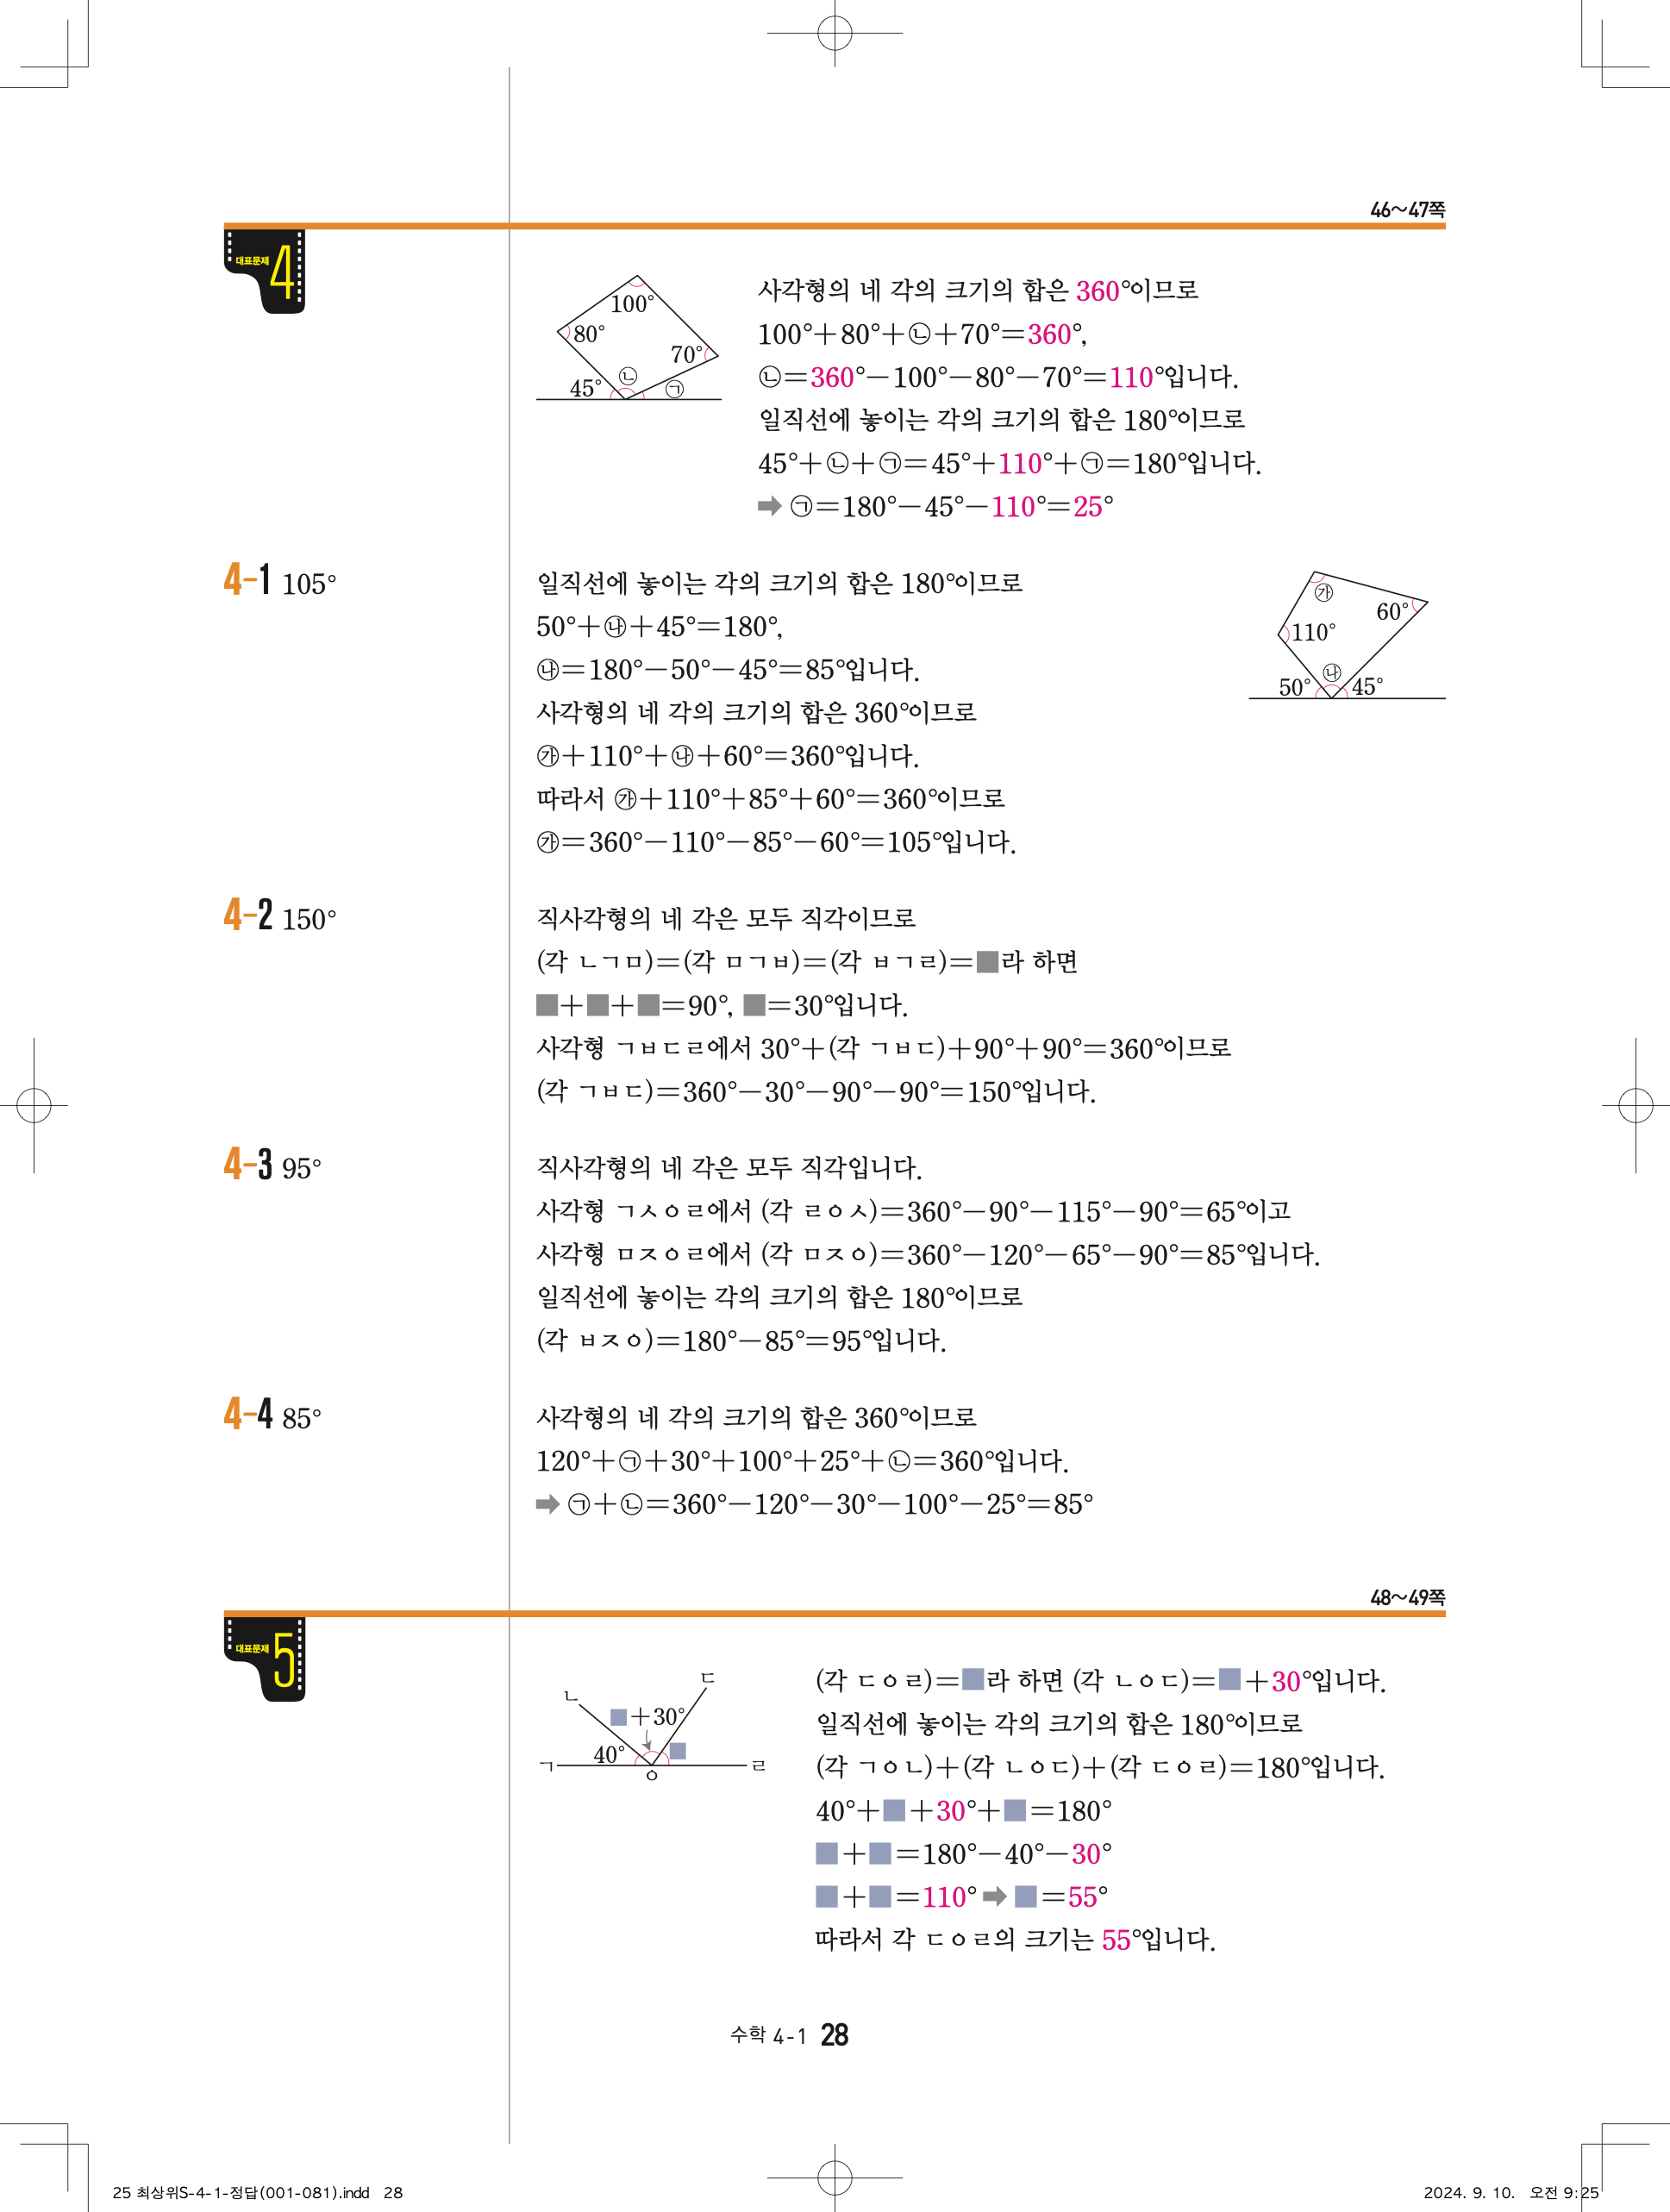 46~47쪽
대표문제 4
100°
80°
70°
45° ㉡ ㉠
사각형의 네 각의 크기의 합은 360°이므로
100°+80°+㉡+70°=360°,
㉡=360°-100°-80°-70°=110°입니다.
일직선에 놓이는 각의 크기의 합은 180°이므로
45°+㉡+㉠=45°+110°+㉠=180°입니다.
➡ ㉠=180°-45°-110°=25°
4-1 105°
일직선에 놓이는 각의 크기의 합은 180°이므로
50°+㉯+45°=180°,
㉯=180°-50°-45°=85°입니다.
사각형의 네 각의 크기의 합은 360°이므로
㉮+110°+㉯+60°=360°입니다.
따라서 ㉮+110°+85°+60°=360°이므로
㉮=360°-110°-85°-60°=105°입니다.
㉮
60°
110°
50° ㉯ 45°
4-2 150°
직사각형의 네 각은 모두 직각이므로
(각 ㄴㄱㅁ)=(각 ㅁㄱㅂ)=(각 ㅂㄱㄹ)=■라 하면
■+■+■=90°, ■=30°입니다.
사각형 ㄱㅂㄷㄹ에서 30°+(각 ㄱㅂㄷ)+90°+90°=360°이므로
(각 ㄱㅂㄷ)=360°-30°-90°-90°=150°입니다.
4-3 95°
직사각형의 네 각은 모두 직각입니다.
사각형 ㄱㅅㅇㄹ에서 (각 ㄹㅇㅅ)=360°-90°-115°-90°=65°이고
사각형 ㅁㅈㅇㄹ에서 (각 ㅁㅈㅇ)=360°-120°-65°-90°=85°입니다.
일직선에 놓이는 각의 크기의 합은 180°이므로
(각 ㅂㅈㅇ)=180°-85°=95°입니다.
4-4 85°
사각형의 네 각의 크기의 합은 360°이므로
120°+㉠+30°+100°+25°+㉡=360°입니다.
➡ ㉠+㉡=360°-120°-30°-100°-25°=85°
48~49쪽
대표문제 5
ㄷ
ㄴ
■+30°
40° ■
ㄱ ㅇ ㄹ
(각 ㄷㅇㄹ)=■라 하면 (각 ㄴㅇㄷ)=■+30°입니다.
일직선에 놓이는 각의 크기의 합은 180°이므로
(각 ㄱㅇㄴ)+(각 ㄴㅇㄷ)+(각 ㄷㅇㄹ)=180°입니다.
40°+■+30°+■=180°
■+■=180°-40°-30°
■+■=110° ➡ ■=55°
따라서 각 ㄷㅇㄹ의 크기는 55°입니다.
수학 4-1 28
25 최상위S-4-1-정답(001-081).indd 28
2024. 9. 10. 오전 9:25